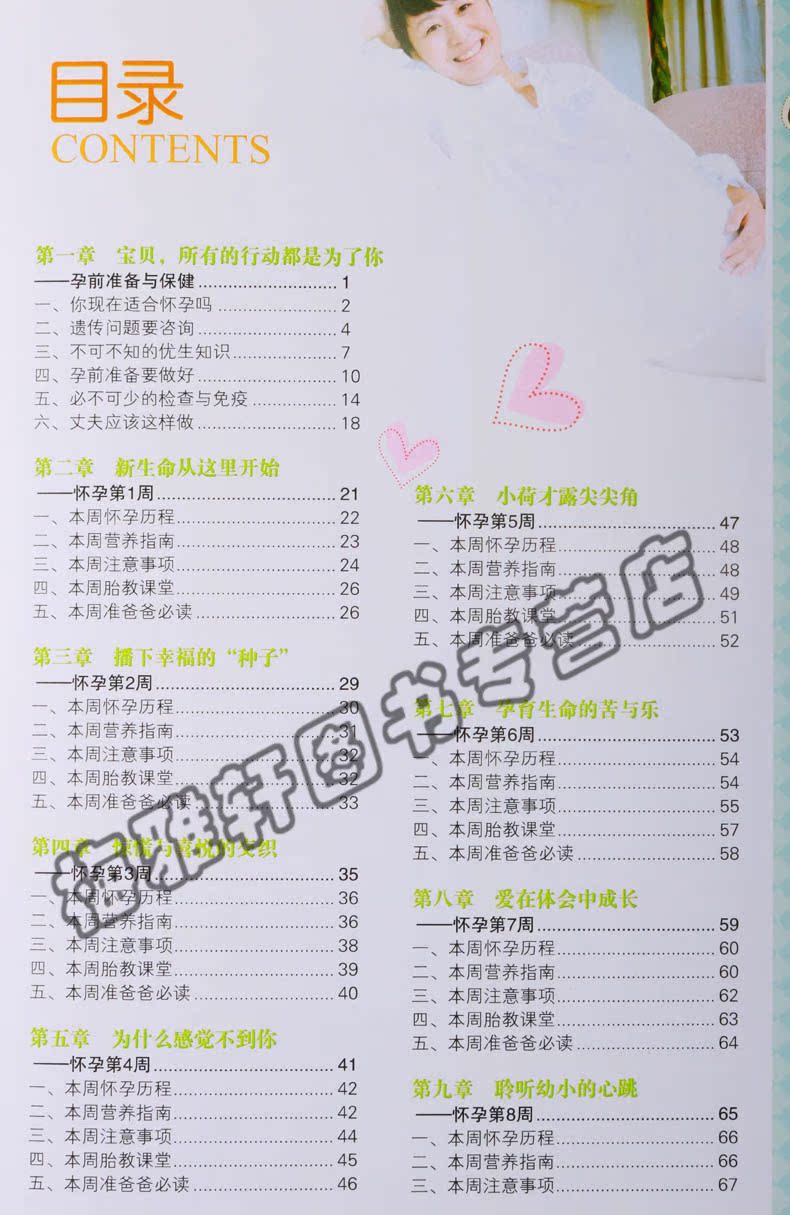 目录
CONTENTS
第一章 宝贝，所有的行动都是为了你
——孕前准备与保健 1
一、你现在适合怀孕吗 2
二、遗传问题要咨询 4
三、不可不知的优生知识 7
四、孕前准备要做好 10
五、必不可少的检查与免疫 14
六、丈夫应该这样做 18
第二章 新生命从这里开始
——怀孕第1周 21
一、本周怀孕历程 22
二、本周营养指南 23
三、本周注意事项 24
四、本周胎教课堂 26
五、本周准爸爸必读 26
第三章 播下幸福的“种子”
——怀孕第2周 29
一、本周怀孕历程 30
二、本周营养指南 31
三、本周注意事项 32
四、本周胎教课堂 32
五、本周准爸爸必读 33
第四章 惊慌与喜悦的交织
——怀孕第3周 35
一、本周怀孕历程 36
二、本周营养指南 36
三、本周注意事项 38
四、本周胎教课堂 39
五、本周准爸爸必读 40
第五章 为什么感觉不到你
——怀孕第4周 41
一、本周怀孕历程 42
二、本周营养指南 42
三、本周注意事项 44
四、本周胎教课堂 45
五、本周准爸爸必读 46
第六章 小荷才露尖尖角
——怀孕第5周 47
一、本周怀孕历程 48
二、本周营养指南 48
三、本周注意事项 49
四、本周胎教课堂 51
五、本周准爸爸必读 52
第七章 孕育生命的苦与乐
——怀孕第6周 53
一、本周怀孕历程 54
二、本周营养指南 54
三、本周注意事项 55
四、本周胎教课堂 57
五、本周准爸爸必读 58
第八章 爱在体会中成长
——怀孕第7周 59
一、本周怀孕历程 60
二、本周营养指南 60
三、本周注意事项 62
四、本周胎教课堂 63
五、本周准爸爸必读 64
第九章 聆听幼小的心跳
——怀孕第8周 65
一、本周怀孕历程 66
二、本周营养指南 66
三、本周注意事项 67
雅轩图书专营店